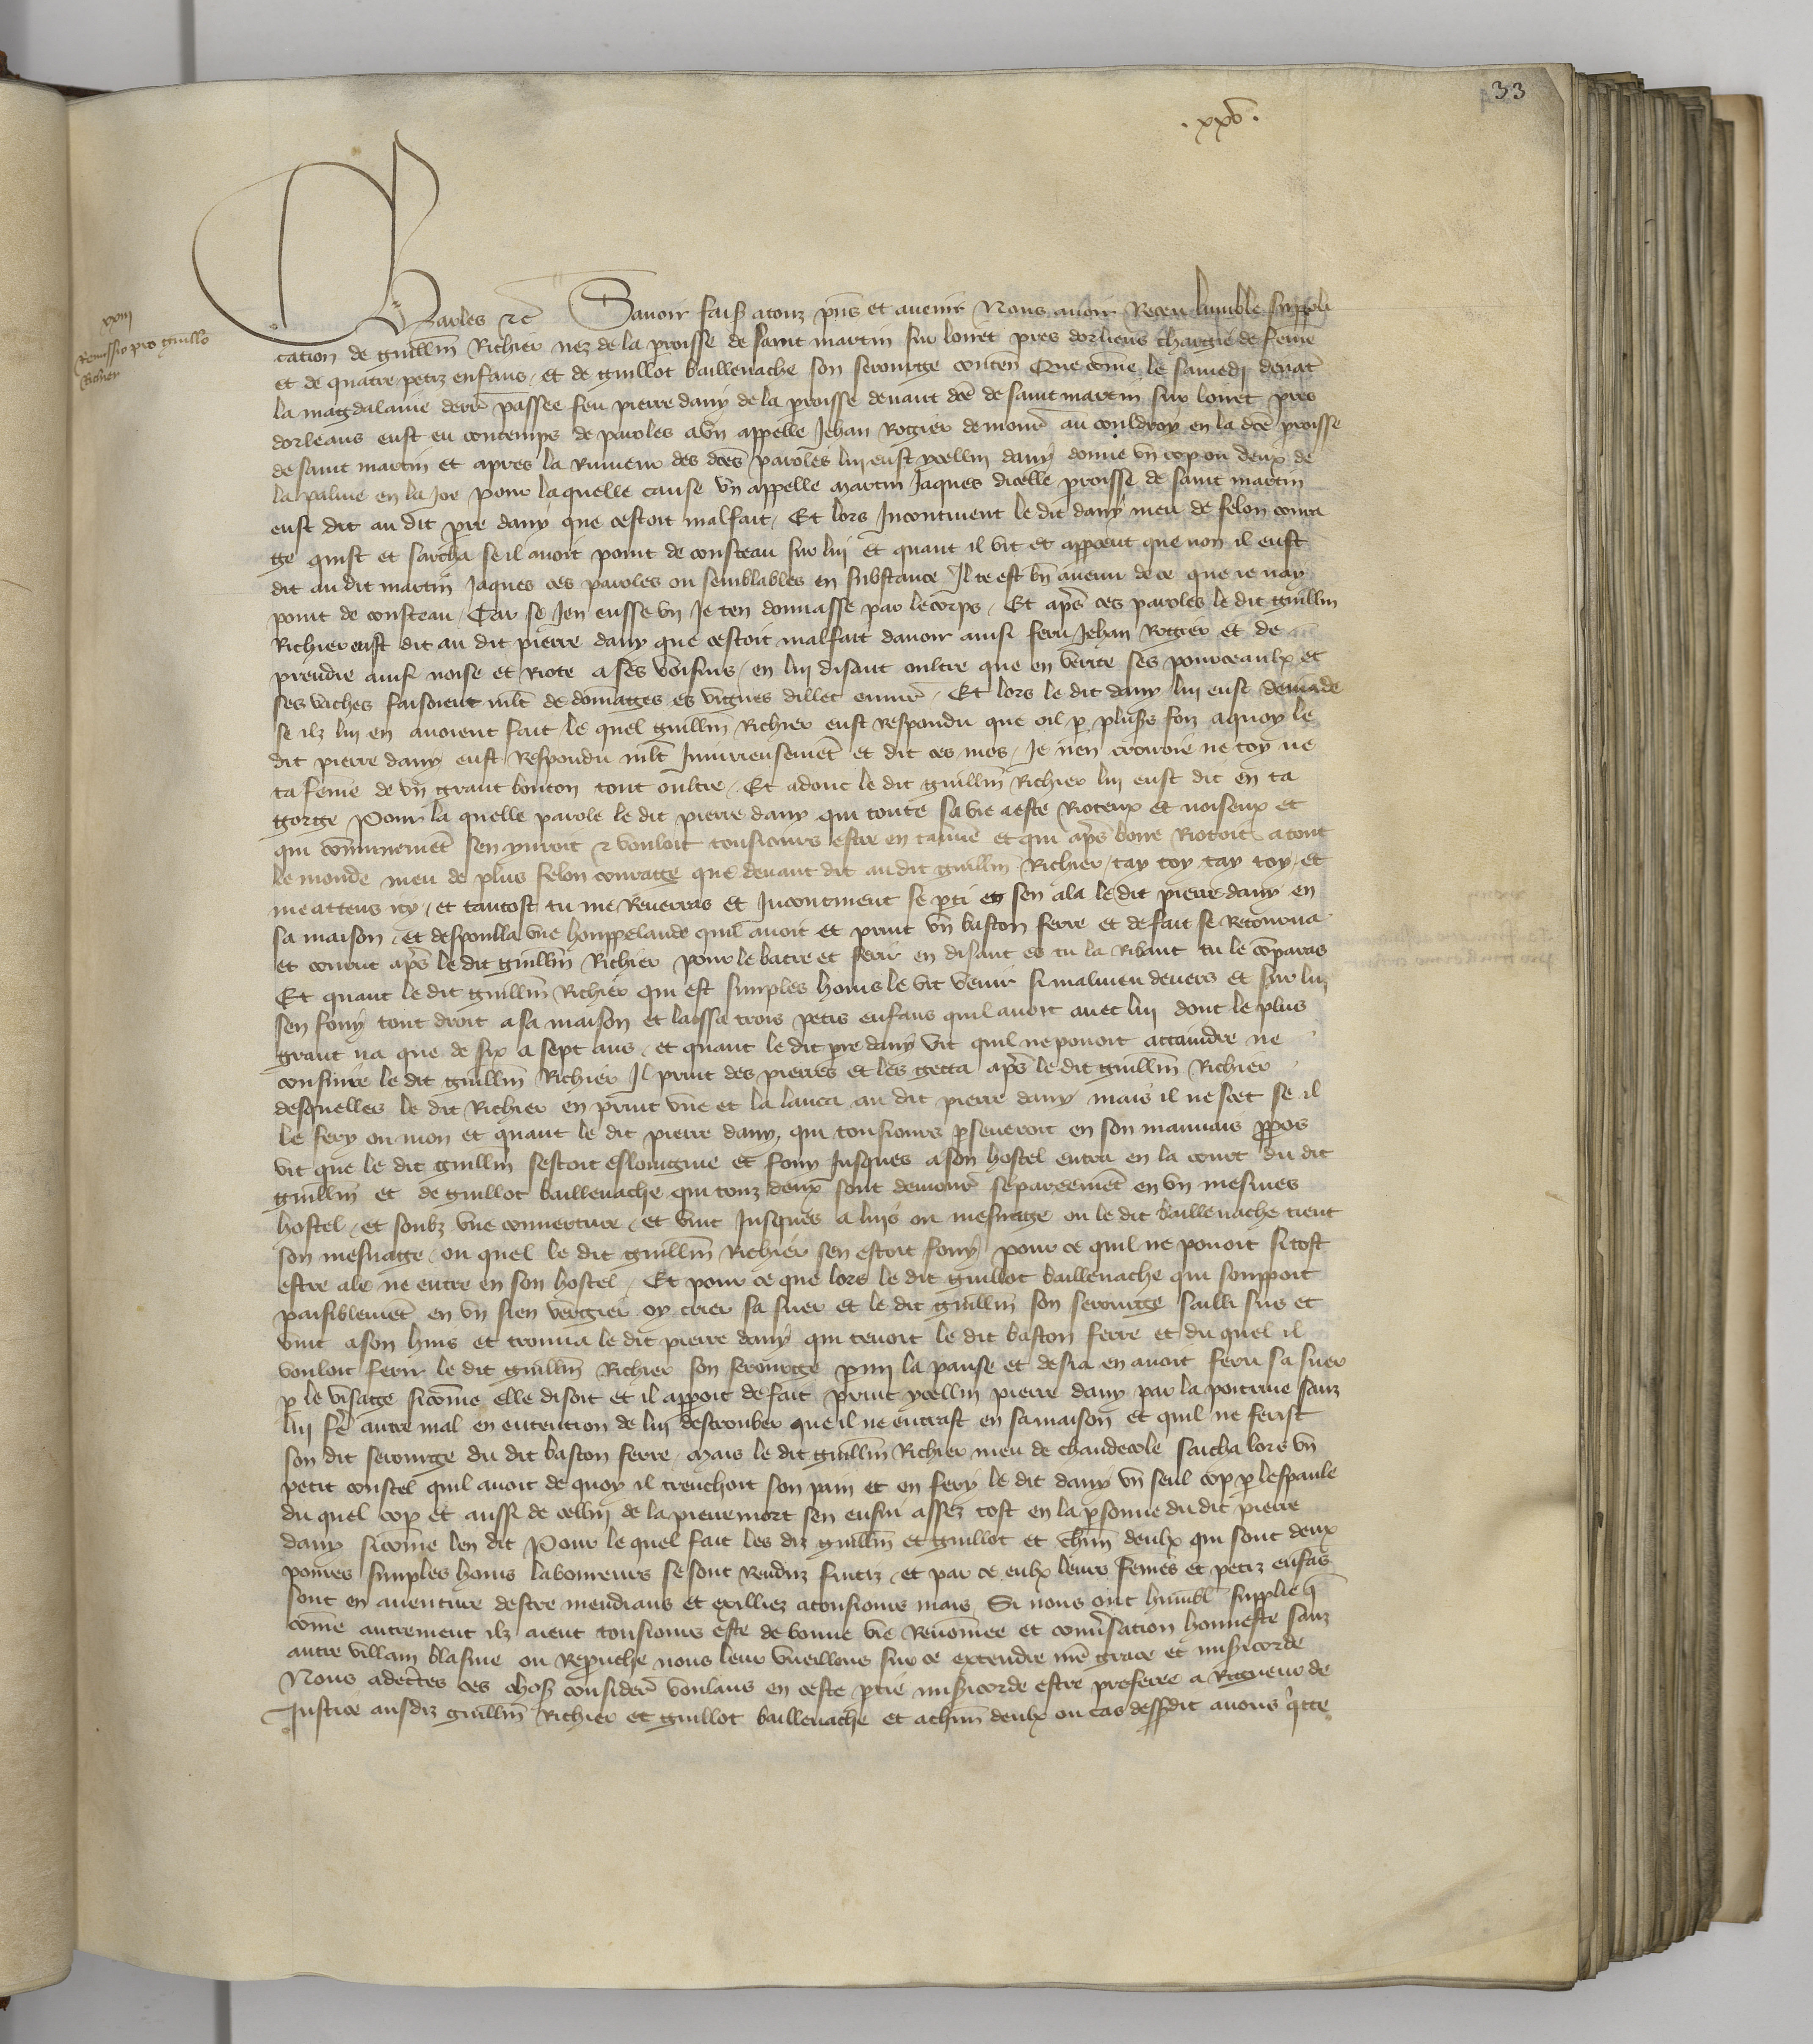 33
.xxv.
xxiii
Remissio pro guillo
Richier
Charles etc Savoir fais a touz p̄ns et avenir Nous avoir Receu lumble suppli
cation de guillm̄ Richier nez de la p̄roisse de saint martin sur loiret pres dorliens chargié de fem̄e
et de quatre petiz enfans et de guillot baillevache son serourge conten̄ Que com̄e le samedi devāt
la magdalaine derr̄ passee feu pierre dany de la p̄roisse devant dc̄e de saint martin sur loiret pres
dorleans eust eu contemps de paroles a vn appelle Jehan Rogier demour̄ au couldroy en la dc̄e p̄roisse
de saint martin et apres la Rumeur des dc̄es paroles lui eust ycellui dany donne vn cop ou deux de
la palme en la joe pour laquelle cause vn appelle martin Jaques dicelle p̄roisse de saint martin
eust dit au dit pr̄e dany que cestoit malfait Et lors Incontinent le dit dany meu de felon coura
ge quist et sarcha se il avoit point de cousteau sur lui et quant il vit et apperceut que non il eust
dit au dit martin Jaques ces paroles ou semblables en substance Il te est bn̄ avenu de ce que ie nay
point de cousteau Car se Jen eusse vn Je ten donnasse par le corps Et ap̄s ces paroles le dit guillm̄
Richier eust dit au dit pierre dany que cestoit malfait davoir ainsi feru Jehan Rogier et de
prendre ainsi noise et Riote a ses voisins en lui disant oultre que en verite ses pourceaulx et
ses vaches faisoient mlt̄ de dommages es vignes dillec envir̄ Et lors le dit dany lui eust demāde
se ilz lui en avoient fait le quel guillm̄ Richier eust Respondu que oil p̄ pluss̄ foiz a quoy le
dit pierre dany eust Respondu mlt̄ Iniurieusemēt et dit ces mos Je nen croiroie ne toy ne
ta fem̄e de vn grant bouton tout oultre Et adonc le dit guillm̄ Richier lui eust dit en ta
gorge Pour la quelle parole le dit pierre dany qui toute sa vie a este Rioteux et noiseux et
qui com̄unemēt sen yvroit et vouloit tousiours estre en taverne et qui ap̄s boire Riotoit a tout
le monde meu de plus felon courage que devant dit au dit guillm̄ Richier tay toy tay toy et
me attens icy et tantost tu me Reverras et Incontinent se p̄ti et sen ala le dit pierre dany en
sa maison et despoulla vne houppelande quil avoit et print vn baston ferre et de fait se Retourna
et courut ap̄s le dit guillm̄ Richier pour le batre et ferir en disant es tu la Ribaut tu le cōparas
Et quant le dit guillm̄ Richier qui est simples homs le vit venir si malmeu devers et sur lui
sen fouy tout droit a sa maison et laissa trois petis enfans quil avoit avec lui dont le plus
grant na que de six a sept ans et quant le dit pr̄e dany vit quil ne povoit attaindre ne
consuire le dit guillm̄ Richier Il print des pierres et les getta ap̄s le dit guillm̄ Richier
desquelles le dit Richier en print vne et la lanca au dit pierre dany mais il ne scet se il
le fery ou non et quant le dit pierre dany qui tousiours p̄severoit en son mauvais p̄pos
vit que le dit guillm̄ sestoit eslongnie et fouy Jusques a son hostel entra en la court du dit
guillm̄ et de guillot baillevache qui touz deux sont demour̄ separeemēt en vn mesmes
hostel et soubz vne couverture et vint Jusques a luis ou mesnage ou le dit baillevache tient
son mesnage ou quel le dit guillm̄ Richier sen estoit fouy pour ce quil ne povoit si tost
estre ale ne entre en son hostel Et pour ce que lors le dit guillot baillevache qui souppoit
paisiblemēt en vn sien vergier oy crier sa suer et le dit guillm̄ son serourge sailli sus et
vint a son huis et trouva le dit pierre dany qui tenoit le dit baston ferre et du quel il
vouloit ferir le dit guillm̄ Richier son serourge p̄mi la panse et desia en avoit feru sa suer
p̄ le visage si com̄e elle disoit et il apparoit de fait print ycellui pierre dany par la poitrine sanz
lui fē autre mal en entention de lui destourber que il ne entrast en sa maison et quil ne ferist
son dit serourge du dit baston ferre mais le dit guillm̄ Richier meu de chaudecole saicha lors vn
petit coustel quil avoit de quoy il trenchoit son pain et en fery le dit dany vn seul cop p̄ lespaule
du quel cop et aussi de cellui de la pierre mort sen ensui assez tost en la p̄sonne du dit pierre
dany si com̄e len dit Pour le quel fait les diz guillm̄ et guillot et chūn deulx qui sont deux
povres simples homs laboureurs se sont Renduz fuitiz et par ce eulx leurs fem̄es et petiz enfās
sont en aventure destre mendians et exilliez a tousiours mais Si nous ont humbl̄ supplie q̄
com̄e autrement ilz aient tousiours este de bonne vie Renom̄ee et conv̄sation honneste sanz
autre villain blasme ou Reprouche nous leur vueillons sur ce extendre nr̄e grace et mis̄icorde
Nous adecertes ces chos̄ consider̄ voulans en ceste p̄tie mis̄icorde estre preferee a Rigueur de
Justice ausdiz guillm̄ Richier et guillot baillevache et a chūn deulx ou cas dess̄dit avons q̄tte